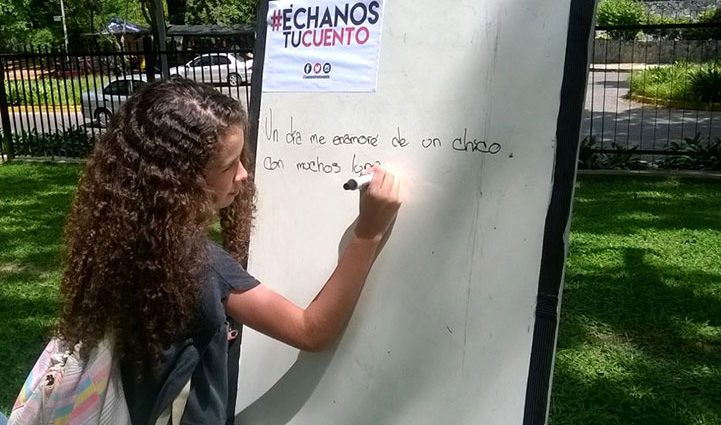 #ÉCHANOS
TUCUENTO
Un día me enamoré de un chico
con muchos